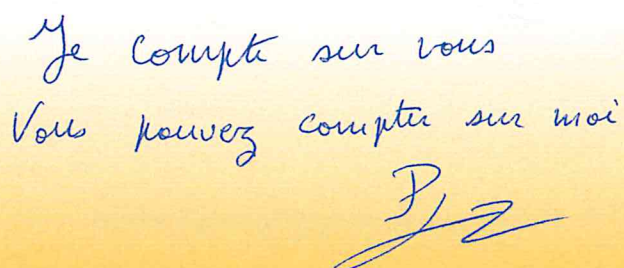 Je compte sur vous
Vous pouvez compter sur moi